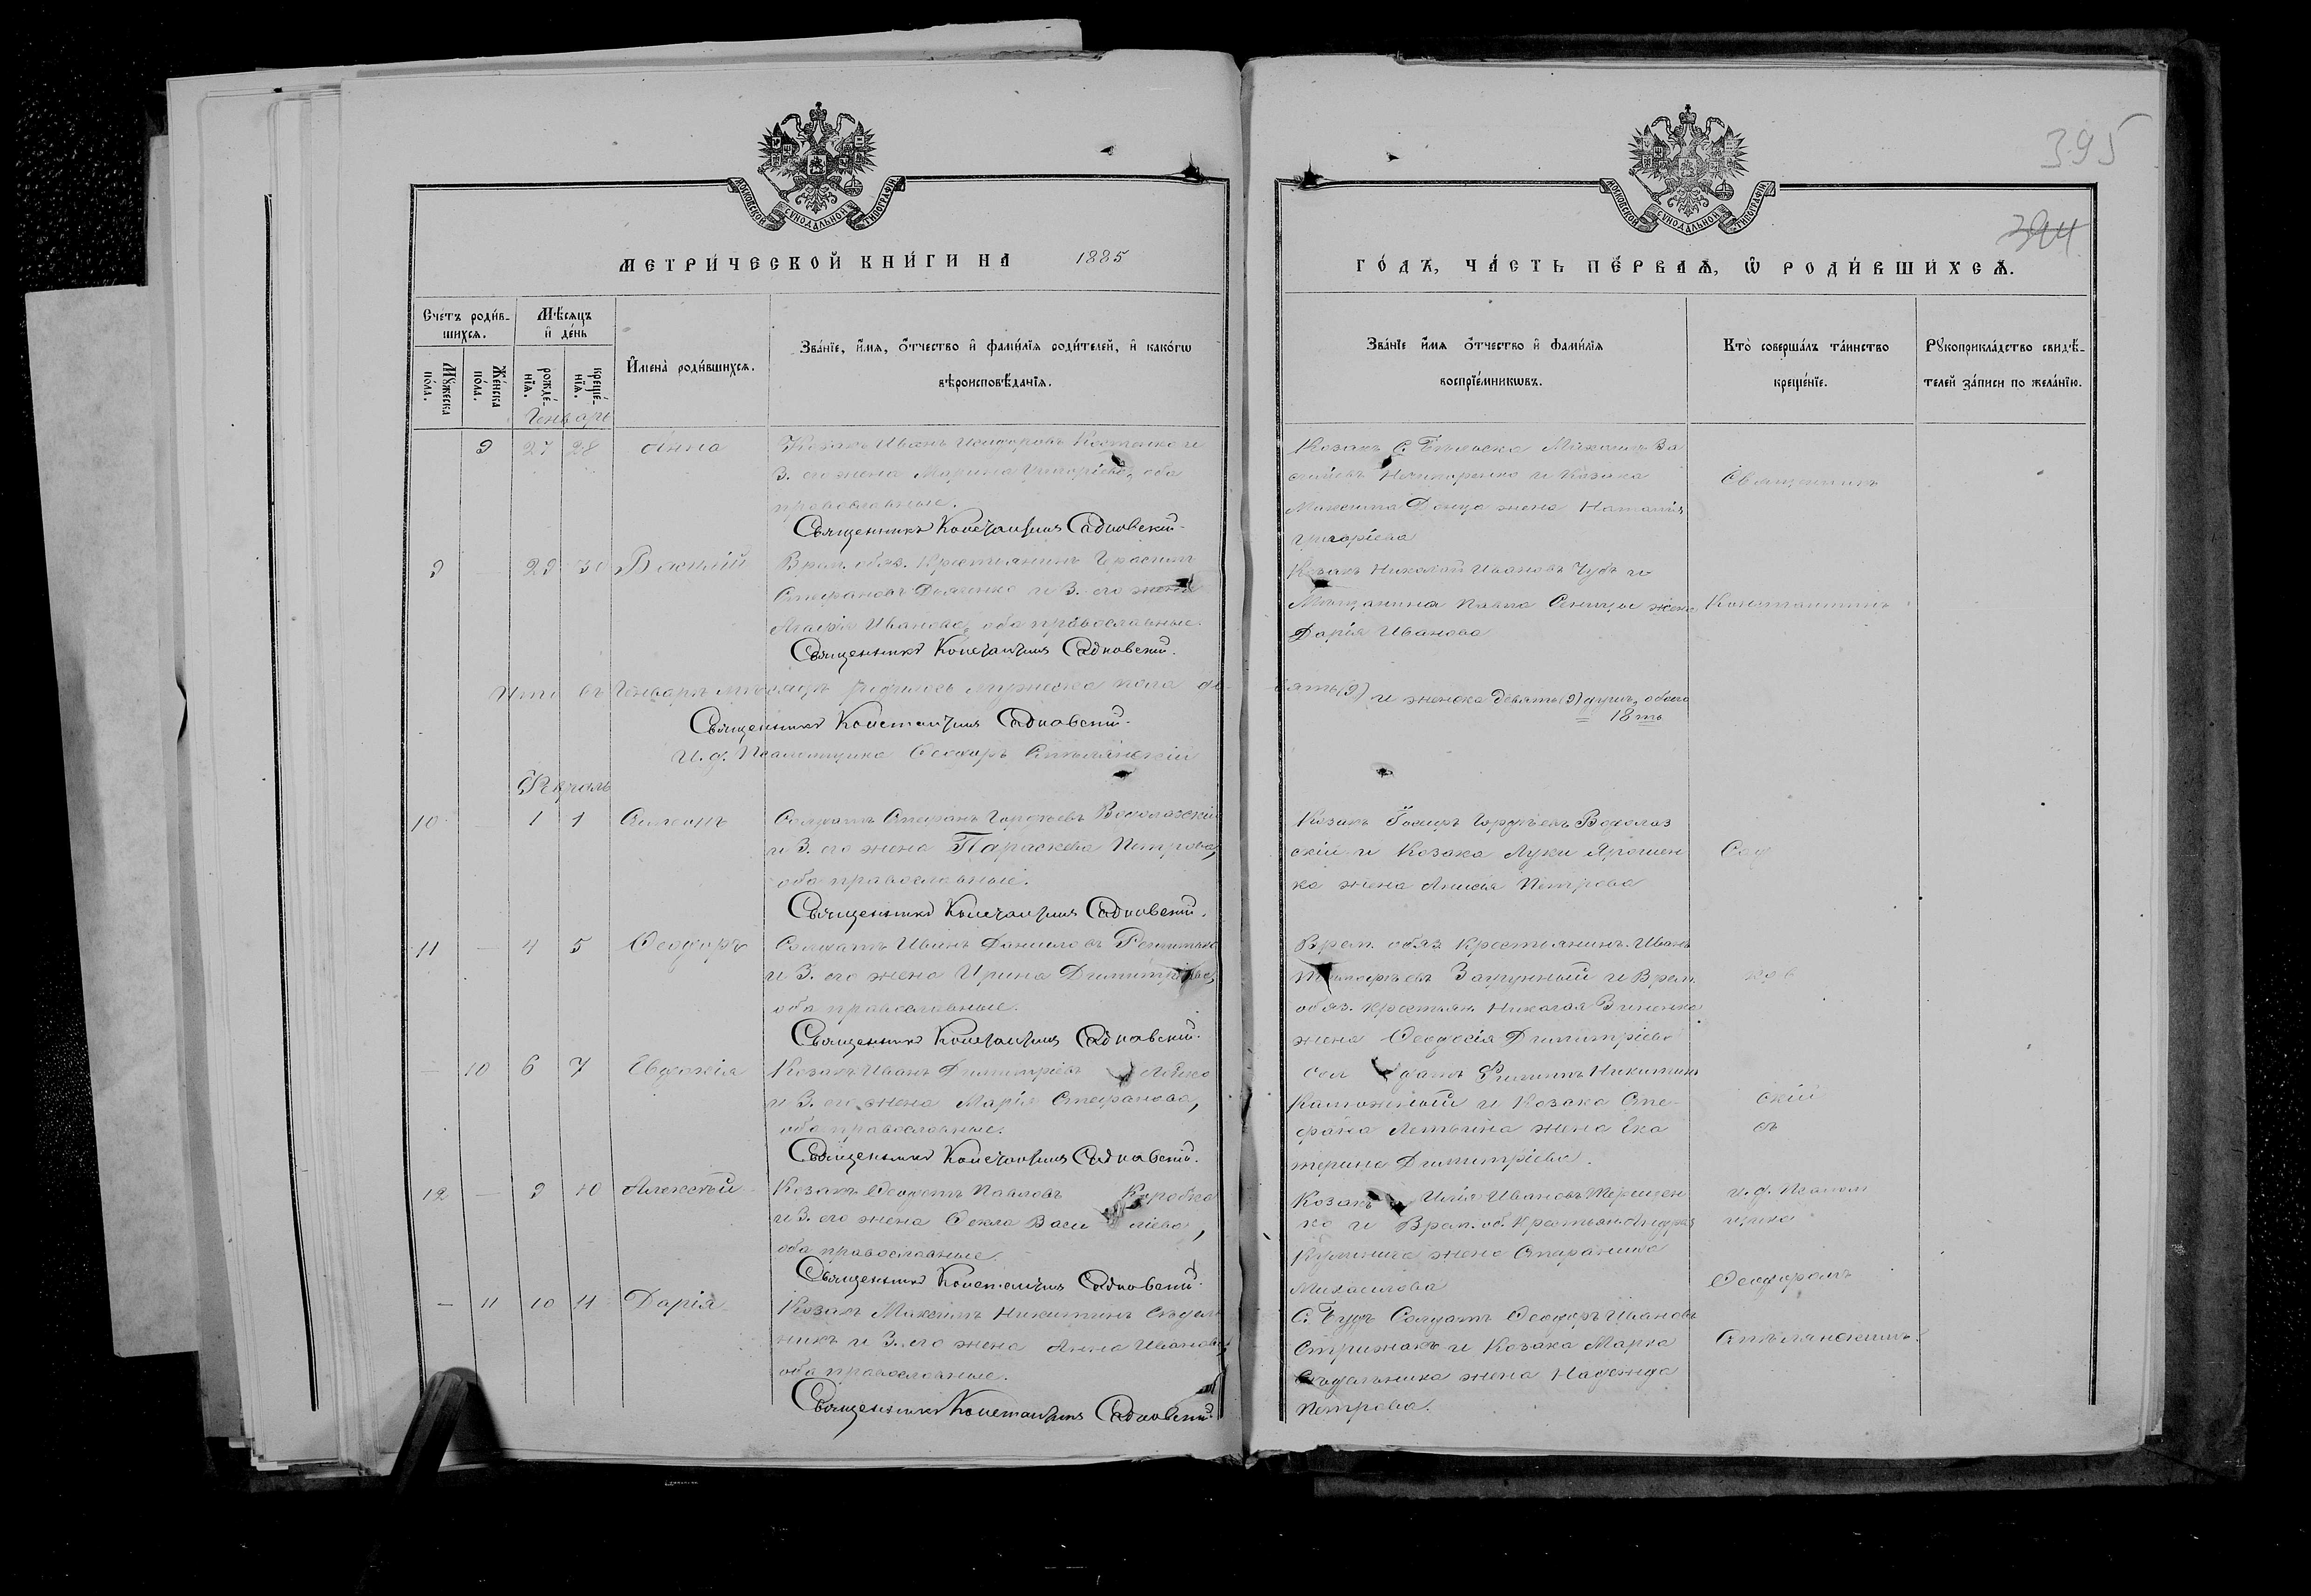 395
394
МОСКОВСКОЙ СѴНОДАЛЬНОЙ ТИПОГРАФІИ
МОСКОВСКОЙ СѴНОДАЛЬНОЙ ТИПОГРАФІИ
МЕТРИ́ЧЕСКОЙ КНИ́ГИ НА 1885
ГО́ДЪ, ЧА́СТЬ ПЕ́РВАѦ, Ѡ РОДИ́ВШИХСѦ.
Сче́тъ роди́в-
шихсѧ.
Мѣ́сѧцъ
и҆ де́нь
Мꙋ́жеска по́ла.
Же́нска по́ла.
рожде́-
нїѧ.
креще́-
нїѧ.
И҆мена̀ роди́вшихсѧ.
Зва́нїе, и҆́мѧ, ѻ҆́тчество и҆ фами́лїѧ роди́телей, и҆ како́гѡ
вѣроисповѣ́данїѧ.
Зва́нїе и҆́мѧ ѻ҆́тчество и҆ фами́лїѧ
воспрїе́мникѡвъ.
Кто̀ соверша́лъ та́инство
креще́нїе.
Рꙋкоприкла́дство свидѣ́-
телей за́писи по жела́нїю.
Генварь
9 27 28 Анна
Козакъ Иванъ Исидоровъ Костенко и
З. его жена Марина Григоріева, оба
православные.
Священникъ Константинъ Садковскій.
Козакъ С. Бѣльска Михаилъ Ва
сильевъ Нечипоренко и Козака
Максима Донца жена Наталія
Григоріева
Священникъ
9 29 30 Василій
Врем. обяз. Крестьянинъ Герасимъ
Стефановъ и З. его жена
Иванова, оба православные.
Священникъ Константинъ Садковскій.
Козакъ Николай Ивановъ Чубъ и
Мѣщанина Павла жена
Дарія Иванова
Константинъ
Итого въ Генварѣ мѣсяцѣ родилось мужеска пола де
вять (9) и женска девять (9) душъ, обоего
18ть
Священникъ Константинъ Садковскій.
И. д. Псаломщика Ѳеодоръ
Февраль
10 1 1 Симеонъ
Солдатъ Стефанъ Гордѣевъ Водолазскій
и З. его жена Параскева Петрова,
оба православные.
Священникъ Константинъ Садковскій.
Козакъ Гордѣевъ Водолаз
скій и Козака Луки Ярошен
ка жена Анисія Петрова
Сад
11 — 4 5 Ѳеодоръ
Солдатъ Иванъ Даниловъ
и З. его жена Ирина Димитріева,
оба православные.
Священникъ Константинъ Садковскій.
Врем. обяз. Крестьянинъ Иванъ
Тимофѣевъ и Врем.
обяз. крестьян. Николая Зиненка
жена Ѳеодосія Димитріева
ков
— 10 6 7 Евдокія
Козакъ Иванъ Димитріевъ
и З. его жена Марія Стефанова,
оба православные.
Священникъ Константинъ Садковскій.
Солдатъ Филиппъ Никитинъ
Калюжный и Козака Сте-
фана Литвина жена Ека
терина Димитріева.
скій
съ
12 — 9 10 Алексѣй
Козакъ Ѳеодотъ Павловъ Коробка
и З. его жена Ѳекла Василіева,
оба православные.
Священникъ Константинъ Садковскій.
Козакъ Илія Ивановъ Терещен
ко и Врем. об. Крестьян. Андрея
жена Стефанида
Михаилова
и. д. Псалом
щика
Ѳеодоромъ
— 11 10 11 Дарія
Козакъ Максимъ Никитинъ Сѣдель
никъ и З. его жена Анна Иванова,
оба православные.
Священникъ Константинъ Садковскій.
С. Будъ Солдатъ Ѳеодоръ Ивановъ
Стрижакъ и Козака Марка
Сѣдельника жена Надежда
Петрова.